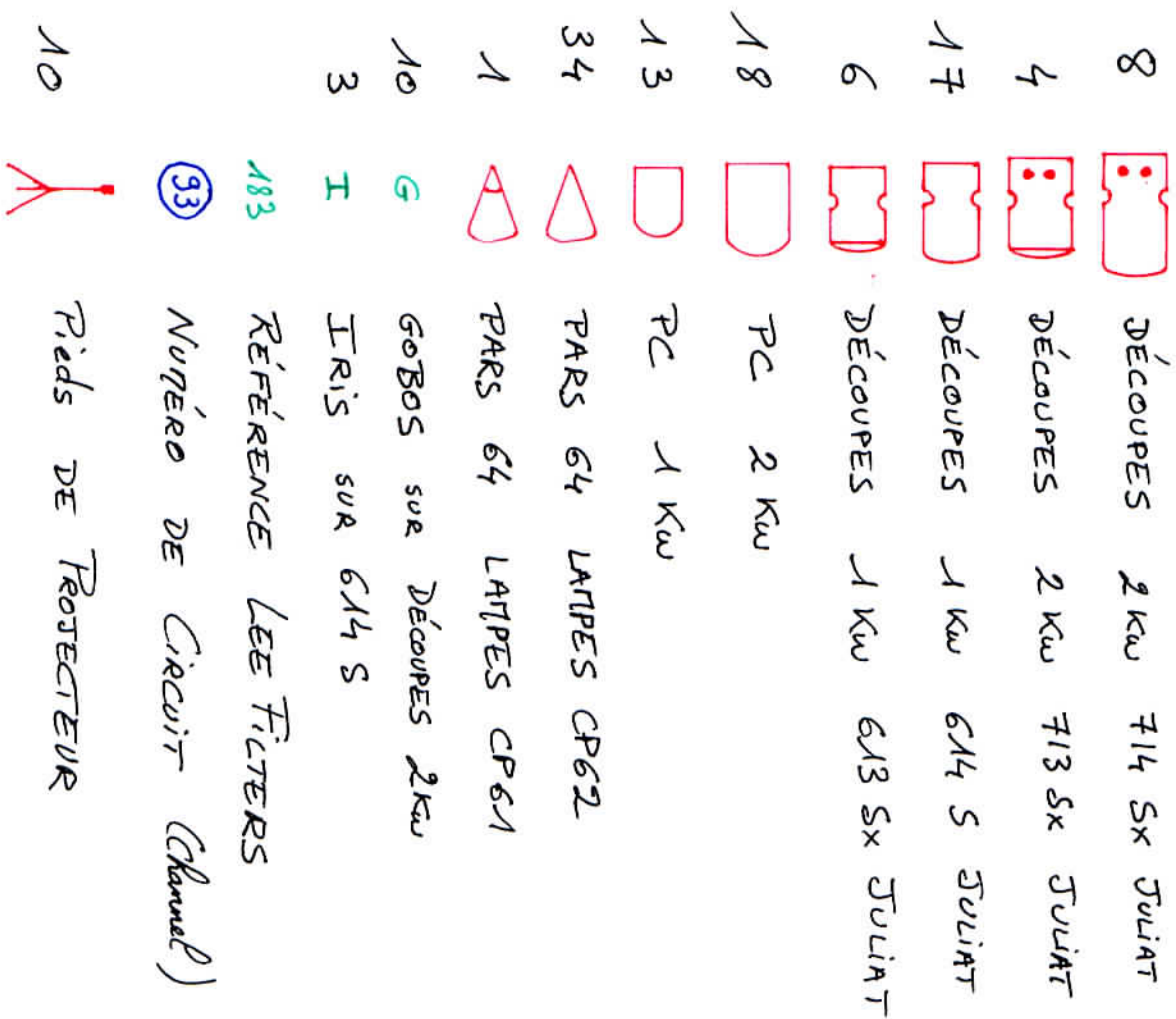 8 DÉCOUPES 2 Kw 714 Sx JULIAT
4 DÉCOUPES 2 Kw 713 Sx JULIAT
17 DÉCOUPES 1 Kw 614 S JULIAT
6 DÉCOUPES 1 Kw 613 Sx JULIAT
18 PC 2 Kw
13 PC 1 Kw
34 PARS 64 LAMPES CP62
1 PARS 64 LAMPES CP61
10 G GOBOS SUR DÉCOUPES 2Kw
3 I IRIS SUR 614 S
183 RÉFÉRENCE LEE FILTERS
93 NUMÉRO DE CIRCUIT (Channel)
10 Pieds DE PROJECTEUR